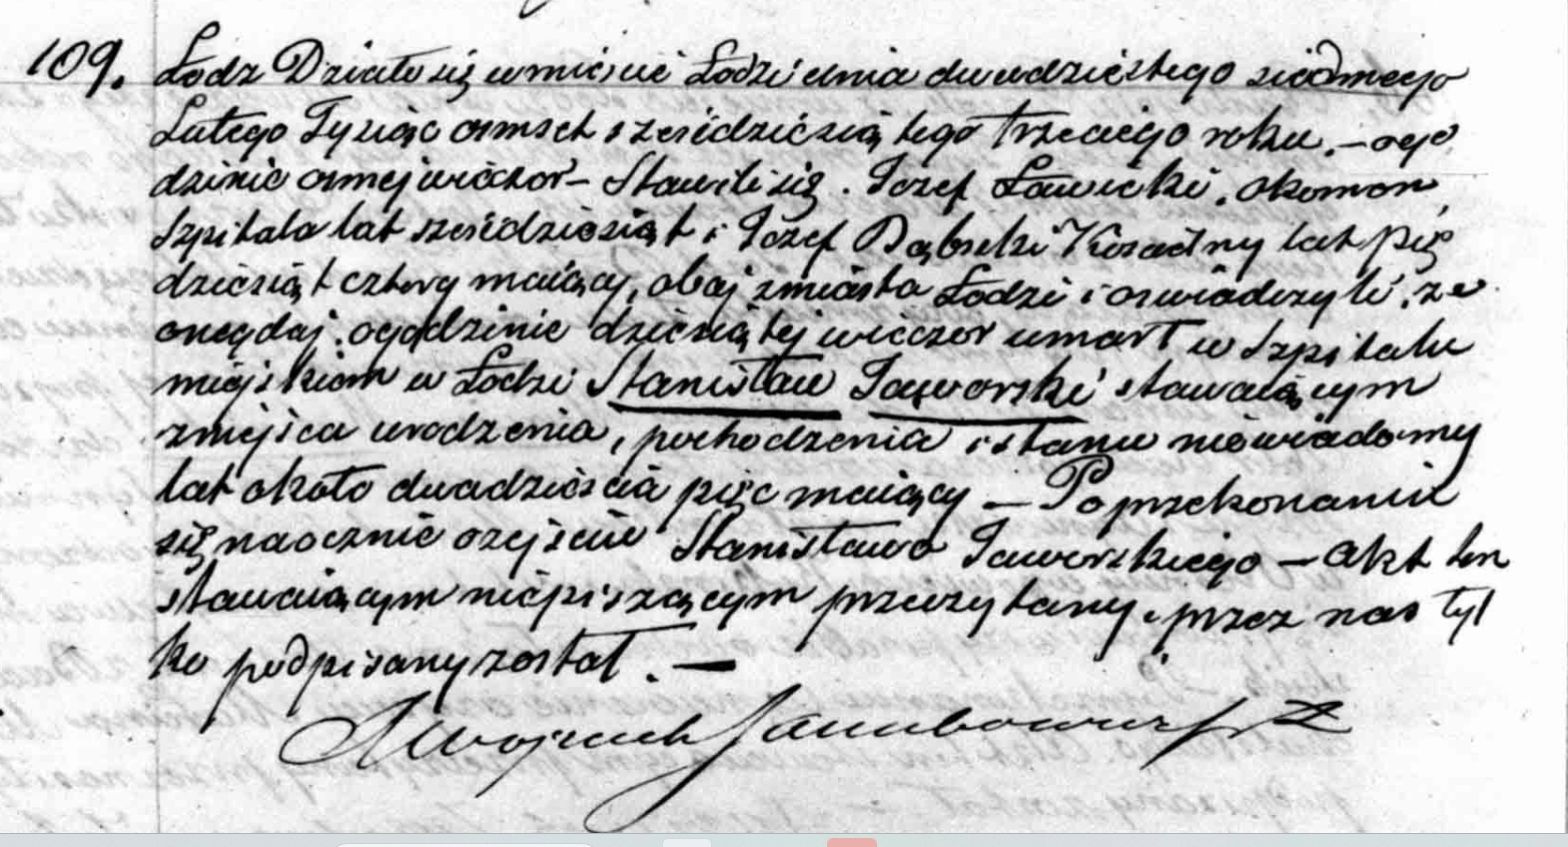 109. Łodz Działo się w mieście Łodzi dnia dwudziestego siodmego
Lutego Tysiąc osmset sześćdziesiątego trzeciego roku. – o go
dzinie osmej wieczor – Stawili się . Jozef Ławicki, ekonom
Szpitala lat sześćdziesiąt i Jozef Dąbski lat pię
dziesiąt cztery maiący, obaj z miasta Łodzi i oswiadczyli, ze
onegdaj o godzinie dziesiątej wieczor umarł w Szpitalu
miejskiem w Łodzi Stanisław Jaworski stawaiącym
z miejsca urodzenia, pochodzenia i stanu niewiadomy
lat około dwadzieścia pięc maiący – Po przekonaniu
się naocznie o zejściu Stanisława Jaworskiego – akt ten
stawaiącym niepiszącym przeczytany, przez nas tyl
ko podpisany został. –